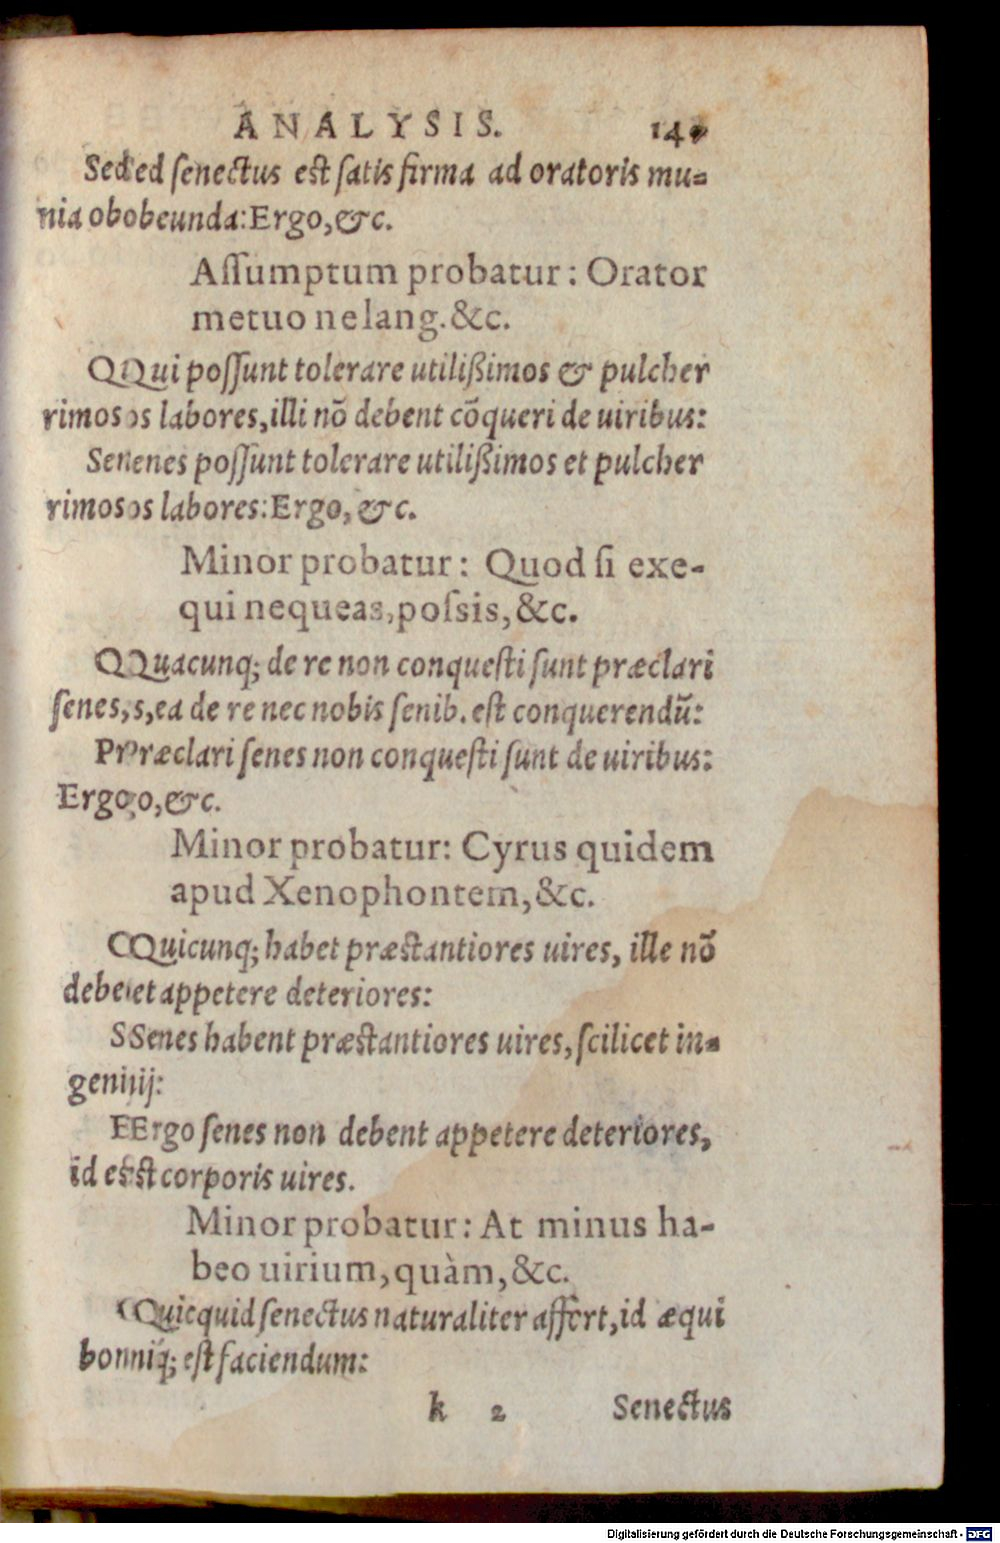 ANALYSIS.
Sed senectus est satis firma ad oratoris mu-
nia obeunda: Ergo, &c.
Assumptum probatur: Orator
metuo ne lang. &c.
Qui possunt tolerare utilißimos & pulcher
rimos labores, illi nõ debent cõqueri de uiribus:
Senes possunt tolerare utilißimos et pulcher
rimos labores: Ergo, &c.
Minor probatur: Quod si exe-
qui nequeas, possis, &c.
Quacunq; de re non conquesti sunt præclari
senes, ea de re nec nobis senib. est conquerendũ:
Præclari senes non conquesti sunt de uiribus:
Ergo, &c.
Minor probatur: Cyrus quidem
apud Xenophontem, &c.
Quicunq; habet præstantiores uires, ille nõ
debet appetere deteriores:
Senes habent præstantiores uires, scilicet in-
genij:
Ergo senes non debent appetere deteriores,
id est corporis uires.
Minor probatur: At minus ha-
beo uirium, quàm, &c.
Quicquid senectus naturaliter affert, id æqui
boniq; est faciendum:
k 2 Senectus
Digitalisierung gefördert durch die Deutsche Forschungsgemeinschaft - DFG